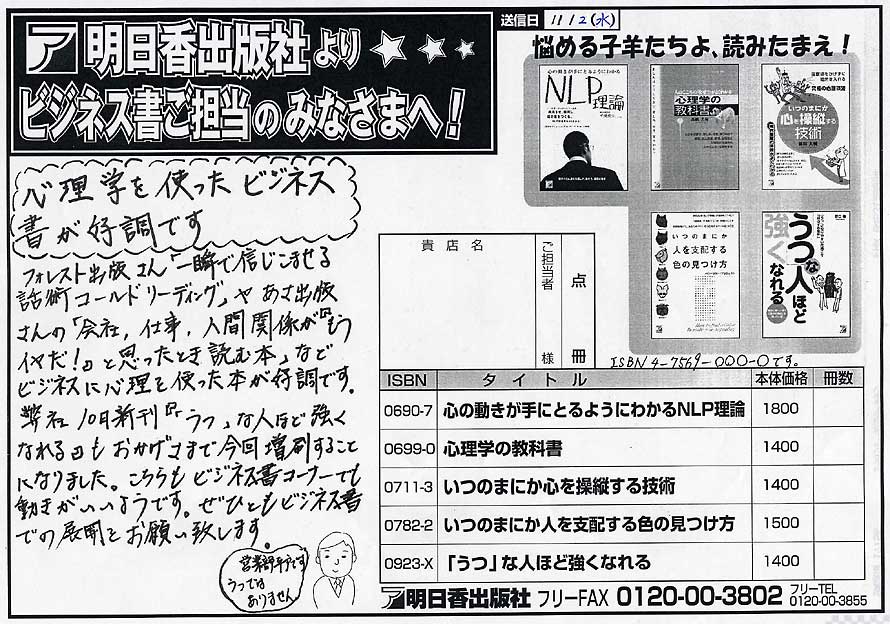 ア 明日香出版社より
ビジネス書ご担当のみなさまへ!
送信日 11/2(水)
悩める子羊たちよ、読みたまえ!
心の動きが手にとるようにわかる
NLP理論
心理学の教科書
いつのまにか
心を操縦する
技術
いつのまにか
人を支配する
色の見つけ方
うつな人ほど
強くなれる
心理学を使ったビジネス
書が好調です
フォレスト出版さん「一瞬で信じこませる
話術コールドリーディング」や あさ出版
さんの「会社,仕事,人間関係が『もう
イヤだ!』と思ったとき読む本」など
ビジネスに心理を使った本が好調です。
弊社 10月新刊『「うつ」な人ほど強く
なれる』もおかげさまで今回増刷すること
になりました。こちらもビジネス書コーナーでも
動きがいいようです。ぜひともビジネス書
での展開をお願い致します。
営業部 です
うつでは
ありません
貴店名
ご担当者 様
点 冊
ISBN4-7569-000-0です。
ISBN タイトル 本体価格 冊数
0690-7 心の動きが手にとるようにわかるNLP理論 1800
0699-0 心理学の教科書 1400
0711-3 いつのまにか心を操縦する技術 1400
0782-2 いつのまにか人を支配する色の見つけ方 1500
0923-X 「うつ」な人ほど強くなれる 1400
ア明日香出版社 フリーFAX 0120-00-3802 フリーTEL 0120-00-3855